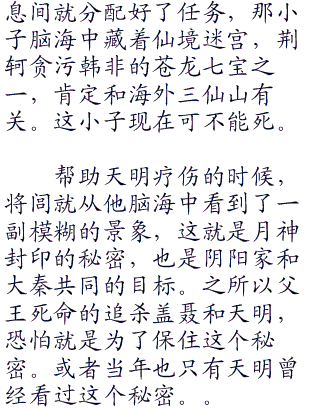 息间就分配好了任务，那小
子脑海中藏着仙境迷宫，荆
轲贪污韩非的苍龙七宝之
一，肯定和海外三仙山有
关。这小子现在可不能死。
帮助天明疗伤的时候，
将闾就从他脑海中看到了一
副模糊的景象，这就是月神
封印的秘密，也是阴阳家和
大秦共同的目标。之所以父
王死命的追杀盖聂和天明，
恐怕就是为了保住这个秘
密。或者当年也只有天明曾
经看过这个秘密。。